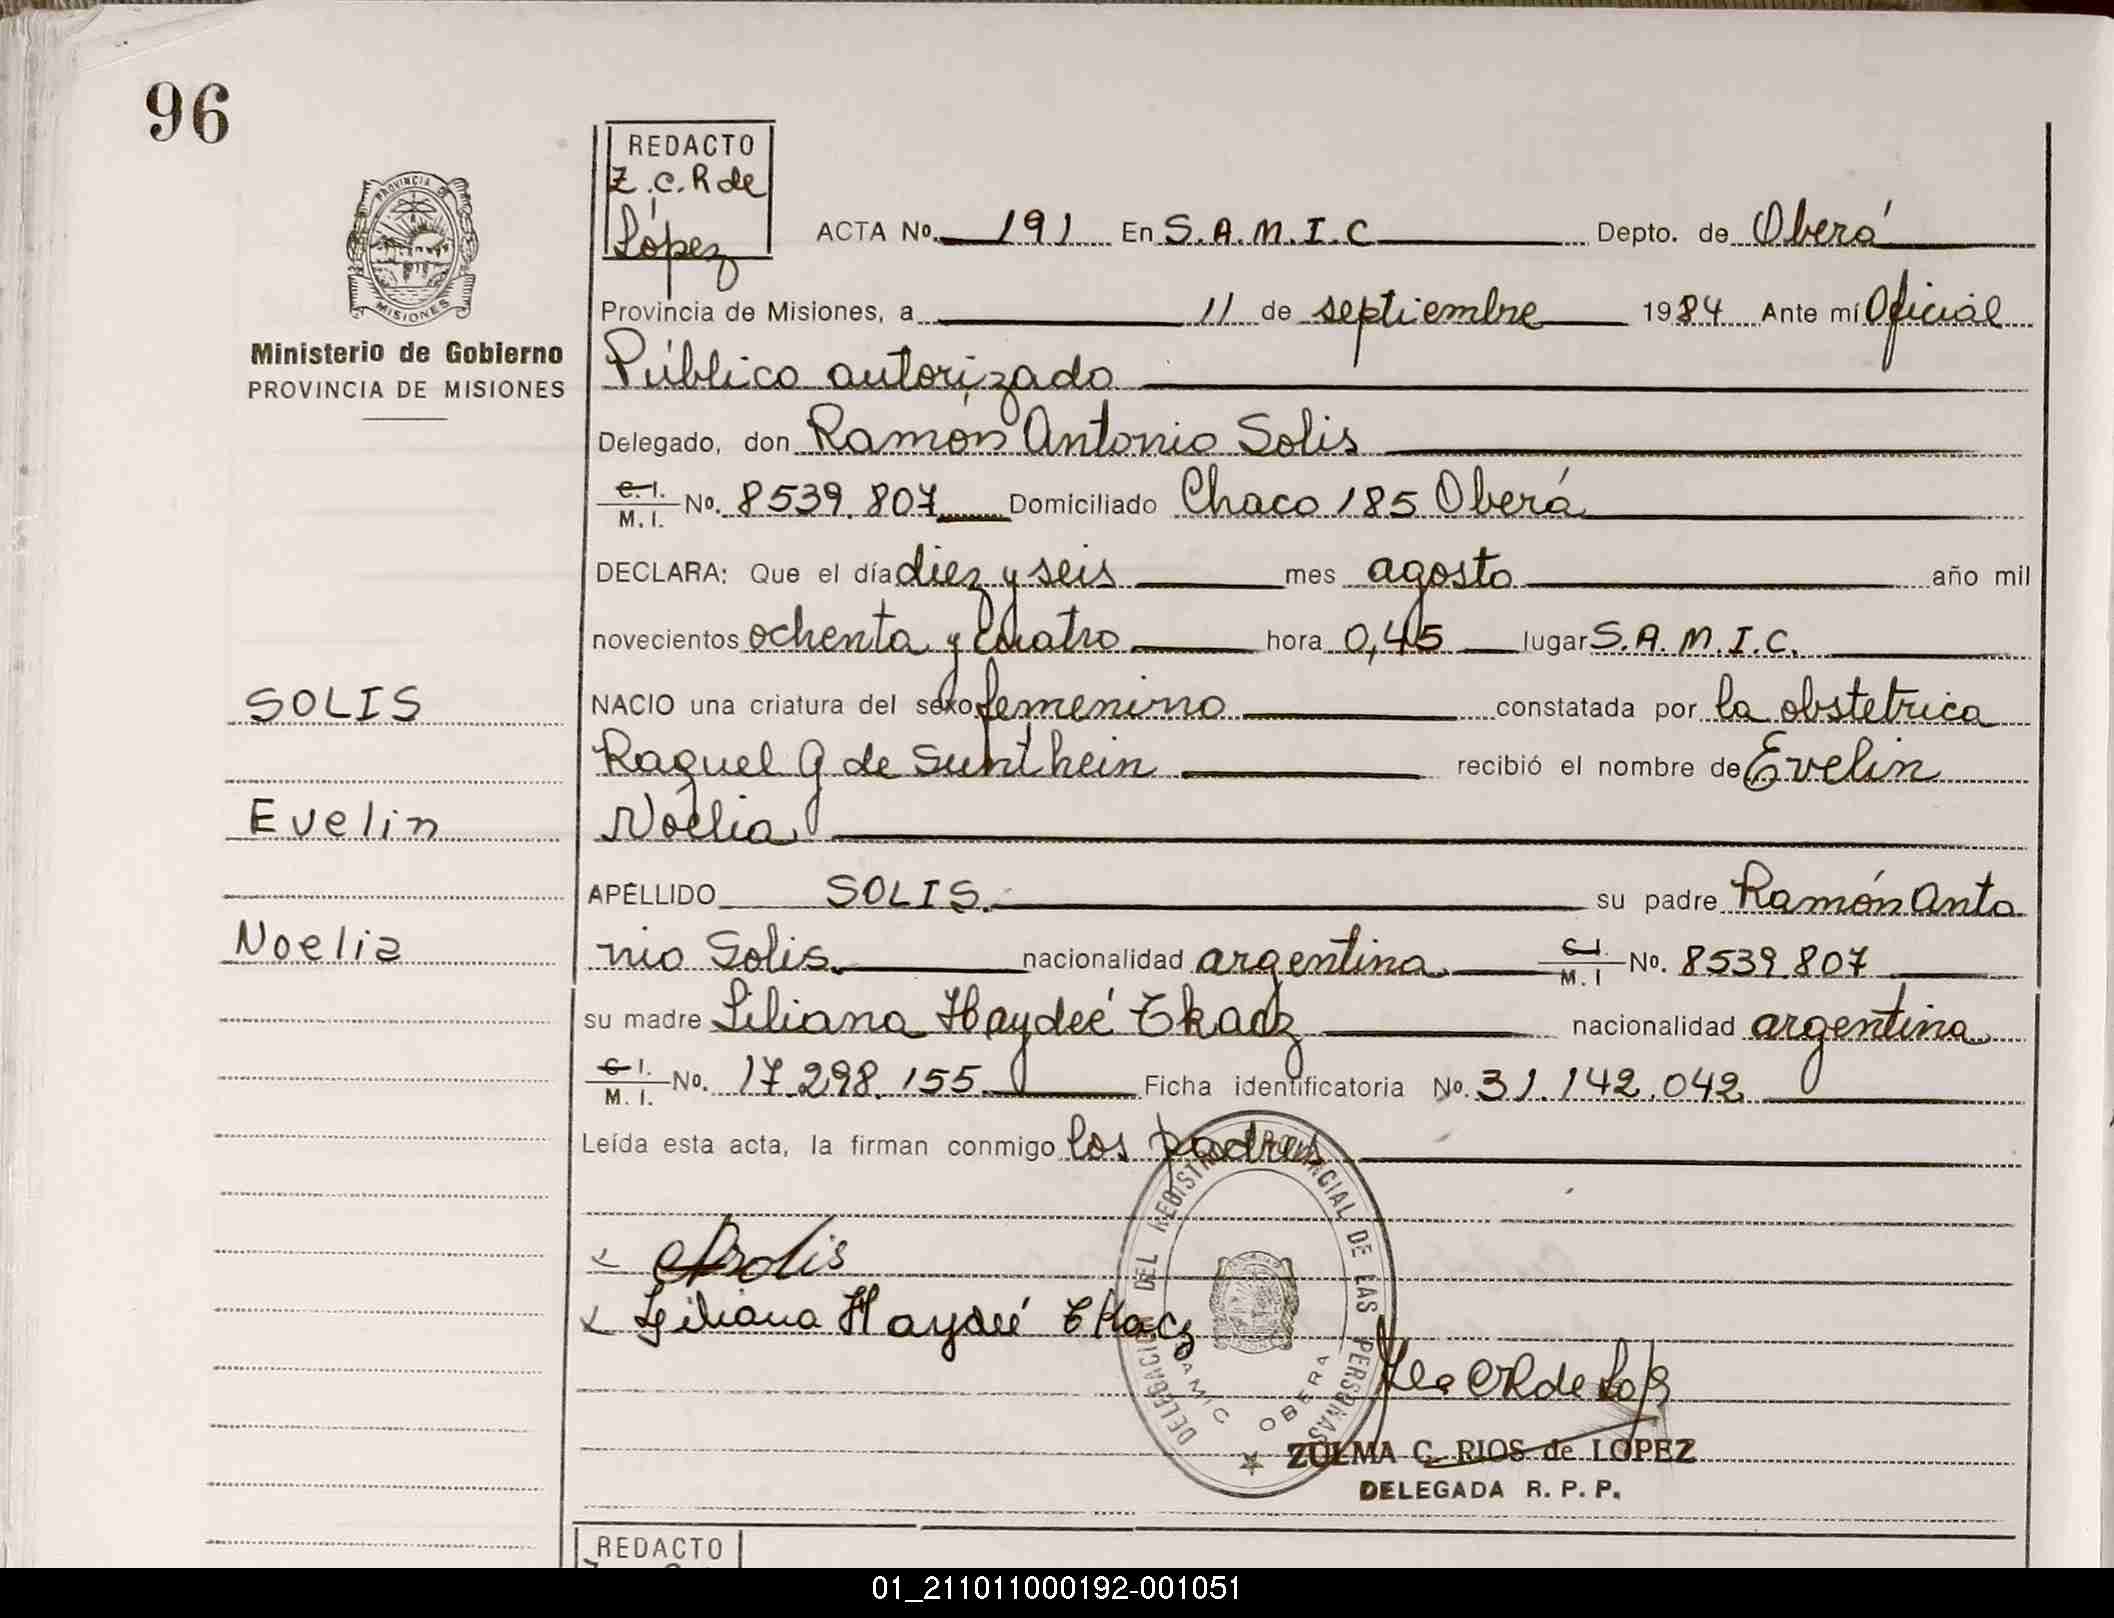 96
REDACTO
Z.C.R de
López
PROVINCIA DE
MISIONES
Ministerio de Gobierno
PROVINCIA DE MISIONES
ACTA No. 191 En S.A.M.I.C Depto. de Oberá
Provincia de Misiones, a 11 de septiembre 1984 Ante mí Oficial
Público autorizado
Delegado, don Ramón Antonio Solis
C.I. / M.I. No. 8539.807 Domiciliado Chaco 185 Oberá
DECLARA: Que el día diez y seis mes agosto año mil
novecientos ochenta y cuatro hora 0,45 lugar S.A.M.I.C.
SOLIS
NACIO una criatura del sexo femenino constatada por la obstetrica
Raquel G de Sunthein recibió el nombre de Evelin
Evelin
Noelia
APELLIDO SOLIS. su padre Ramón Anto
Noelia
nio Solis. nacionalidad argentina. C.I. / M.I No. 8539.807
su madre Liliana Haydeé Tkacz nacionalidad argentina
C.I. / M.I. No. 17.298.155 Ficha identificatoria No. 31.142.042
Leída esta acta, la firman conmigo los padres
x Solis
x Liliana Haydeé Tkacz
DELEGACION DEL REGISTRO PROVINCIAL DE LAS PERSONAS
SAMIC OBERA
ZULMA C. RIOS de LOPEZ
DELEGADA R. P. P.
REDACTO
01_211011000192-001051